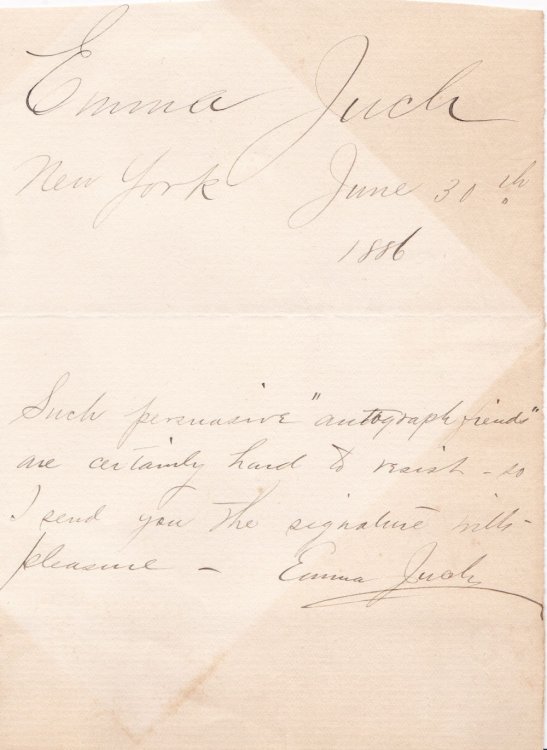 Emma Juch
New York June 30th
1886
Such persuasive "autograph fiends"
are certainly hard to resist - so
I send you the signature with
pleasure - Emma Juch